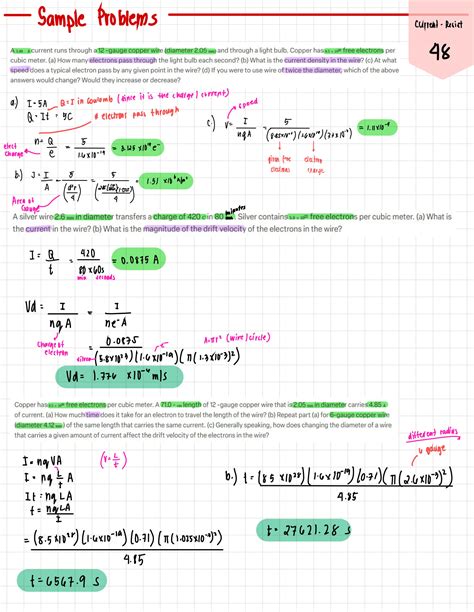 Sample Problems
Current - Resist
48
A 5.00 A current runs through a 12-gauge copper wire (diameter 2.05 mm) and through a light bulb. Copper has 8.5 × 10²⁸ free electrons per
cubic meter. (a) How many electrons pass through the light bulb each second? (b) What is the current density in the wire? (c) At what
speed does a typical electron pass by any given point in the wire? (d) If you were to use wire of twice the diameter, which of the above
answers would change? Would they increase or decrease?
a) I = 5A Q = I in Coulomb (since it is the charge / current)
Q = It = 5C
# electrons pass through
n = Q/e = 5/1.6×10⁻¹⁹ = 3.125 × 10¹⁹ e⁻
elect charge
c) V = I/nqA = 5
speed
given free electrons
electron charge
b) J = I/A = 5
Area of
A silver wire 2.6 mm in diameter transfers a charge of 420 C in 80 minutes. Silver contains free electrons per cubic meter. (a) What is
the current in the wire? (b) What is the magnitude of the drift velocity of the electrons in the wire?
I = Q/t = 420/80×60s = 0.0875 A
min seconds
Vd = I/nqA = I/ne⁻A
Charge of electron
A = πr² (wire/circle)
= 0.0875/(5.8×10²⁸)(1.6×10⁻¹⁹)(π(1.3×10⁻³)²)
silver
Vd = 1.776 × 10⁻⁶ m/s
Copper has 8.5 × 10²⁸ free electrons per cubic meter. A 71.0 cm length of 12-gauge copper wire that is 2.05 mm in diameter carries 4.85 A
of current. (a) How much time does it take for an electron to travel the length of the wire? (b) Repeat part (a) for 6-gauge copper wire
(diameter 4.12 mm) of the same length that carries the same current. (c) Generally speaking, how does changing the diameter of a wire
that carries a given amount of current affect the drift velocity of the electrons in the wire?
different radius
6 gauge
I = nqVA (V = L/t)
I = nq L/t A
It = nqLA
t = nqLA/I
= (8.5×10²⁸)(1.6×10⁻¹⁹)(0.71)(π(1.025×10⁻³)²)/4.85
t = 6567.9 s
b.) t = (8.5×10²⁸)(1.6×10⁻¹⁹)(0.71)(π(2.6×10⁻³)²)/4.85
t = 27621.28 s